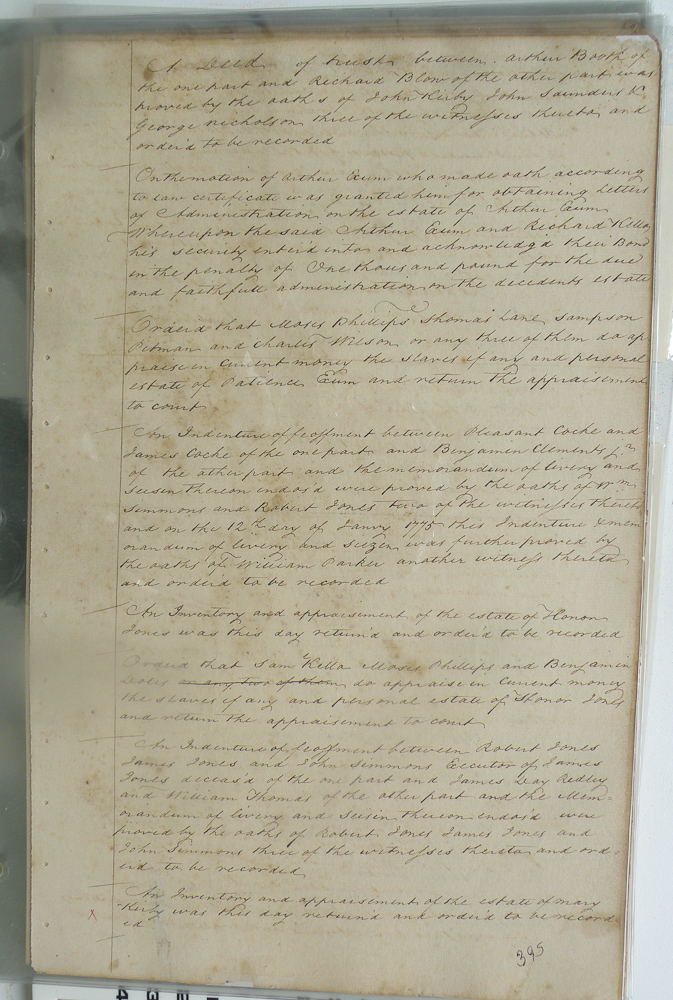 A Deed of trust between Arthur Booth of
the one part and Richard Blow of the other part was
proved by the oath s of John Kirby John Saunders &
George Nicholson three of the witnesses thereto and
order'd to be recorded
On the motion of Arthur Exum who made oath according
to law certificate was granted him for obtaining Letters
of Administration on the estate of Arthur Exum
Whereupon the said Arthur Exum and Richard Kello
his security enter'd into and acknowledgd their Bond
in the penalty of One thousand pound for the due
and faithfull administration on the decedents estate
Order'd that Moses Phillips Thomas Lane Sampson
Pitman and Charles Wilson or any three of them do ap
praise in Current money the slaves if any and personal
estate of Patience Exum and return the appraisement
to court
An Indenture of feoffment between Pleasant Cocke and
James Cocke of the one part and Benjamin Clements Jr
of the other part and the memorandum of livery and
seisin thereon indors'd were proved by the oaths of Wm
Simmons and Robert Jones two of the witnesses thereto
and on the 12th day of Janry 1775 this Indenture & mem
orandum of livery and seizen was further proved by
the oaths of William Parker another witness thereto
and order'd to be recorded
An Inventory and appraisement of the estate of Honor
Jones was this day return'd and order'd to be recorded
Order'd that Saml Kello Moses Phillips and Benjamin
or any two of them do appraise in Current money
the slaves if any and personal estate of Honor Jones
and return the appraisement to court
An Indenture of feoffment between Robert Jones
James Jones and John Simmons Executor of James
Jones deceas'd of the one part and James Day Redley
and William Thomas of the other part and the Mem=
orandum of livery and seisin thereon indors'd were
proved by the oaths of Robert Jones James Jones and
John Simmons three of the witnesses thereto and ord
er'd to be recorded
An Inventory and appraisement of the estate of Mary
X Kirby was this day return'd and order'd to be record
ed
395